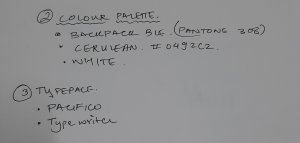 ② COLOUR PALETTE.
• BACKPACK BLE. (PANTONE 308)
• CERULEAN. #0492C2.
• WHITE.
③ TYPEFACE.
• PACIFICO
• Typewriter